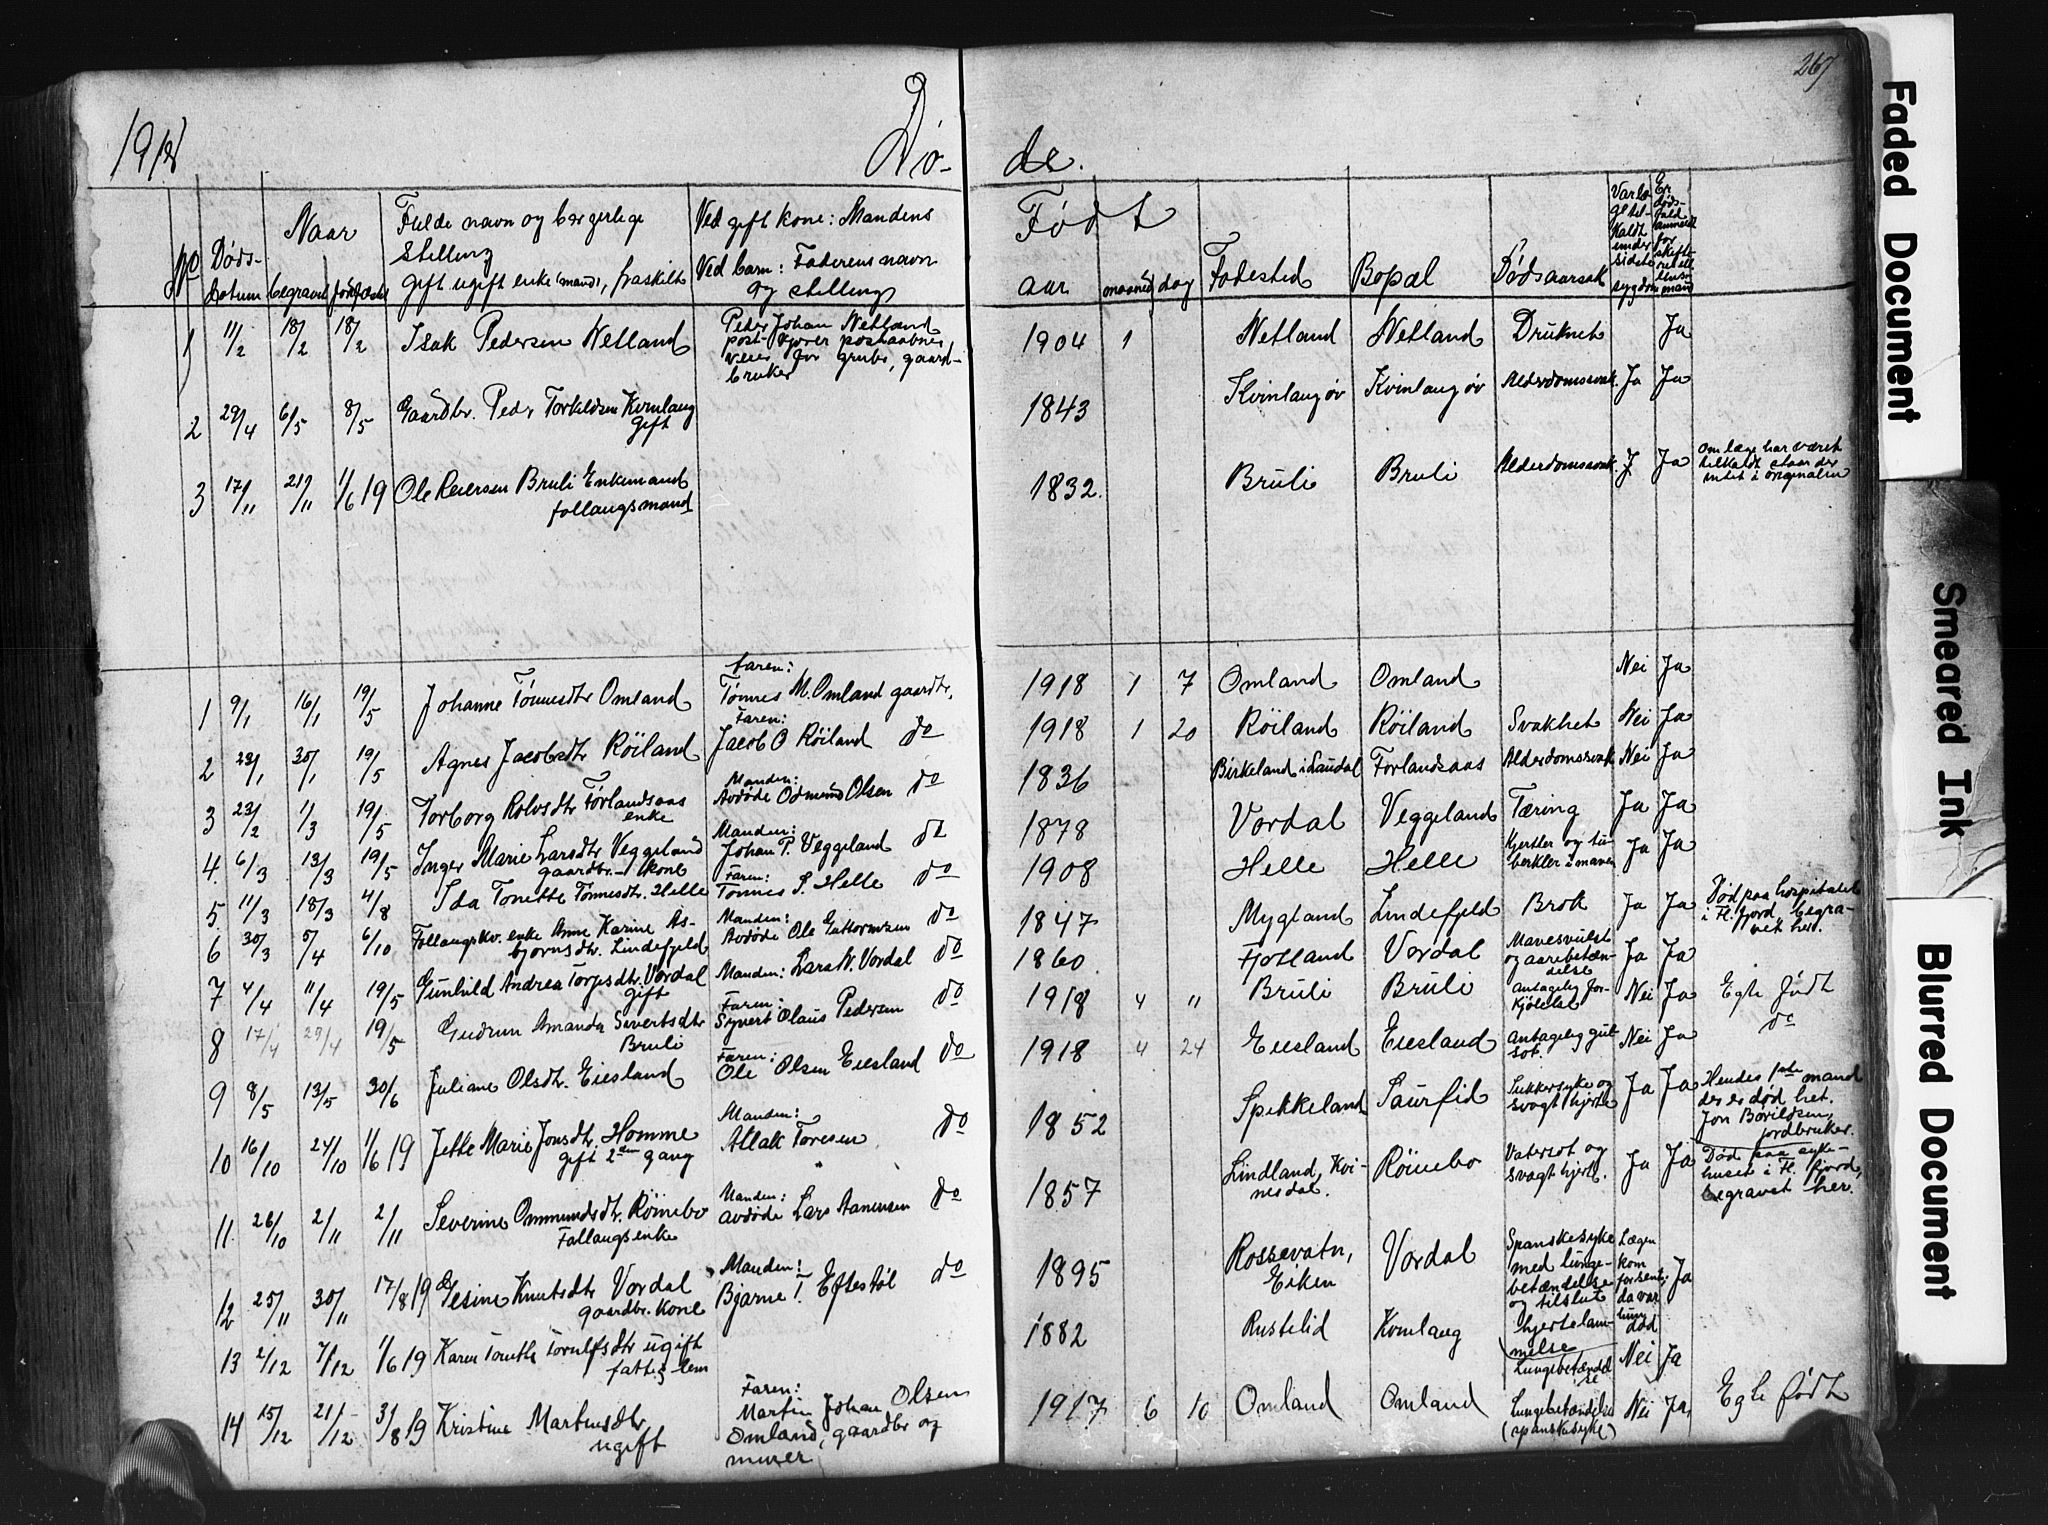 267
1918 Dø- de.
No
Naar
Døds-
Datum
begravet
jordfæstet
Fulde navn og borgerlige
Stilling
Gift ugift enke (mand), fraskilt
Ved gift kone: Mandens
Ved barn: Faderens navn
og stilling
Født
aar maaned dag
Fødested
Bopæl
Dødsaarsak
Var læ
ge til-
kaldt
under
sidste
sygdom
Er
døds-
fald
anmeldt
for
skifte-
ret ell
lens-
mand
1 11/2 18/2 18/2 Isak Pedersen Netland
Peder Johan Netland
post- veier for grube, gaard-
bruker
1904 1 Netland Netland Druknet Ja
2 29/4 6/5 8/5 Gaardbr. Peder Torkildsen Kvinlaug
Gift
1843 Kvinlaug øv Kvinlaug øv Alderdomssvak. Ja Ja
3 17/11 21/11 1/6 19 Ole Reiersen Bruli Enkemand
follaugsmand
1832. Bruli Bruli Alderdomssvak. J Ja
Om læge har været
tilkaldt staar der
intet i originalen
1 9/1 16/1 19/5 Johanne Tønnesdtr Omland
Faren:
Tønnes M. Omland gaardbr.
1918 1 7 Omland Omland Nei Ja
2 23/1 30/1 19/5 Agnes Jacobsdtr Röiland
Faren:
Jacob O Röiland do
1918 1 20 Röiland Röiland Svakhet Nei Ja
3 23/2 1/3 19/5 Torborg Rolvsdtr Førlandsaas
enke
Manden:
Avdøde Odmund Olsen do
1836 Birkeland i Laudal Forlandsaas Alderdomssvak Nei Ja
4. 6/3 13/3 19/5 Inger Marie Larsdtr Veggeland
gaardbr.- kone
Manden:
Johan P. Veggeland do
1878 Vordal Veggeland Tæring Ja Ja
5. 11/3 18/3 4/8 Ida Tonette Tönnesdtr. Helle
Faren:
Tønnes S. Helle do
1908 Helle Helle Kjertler og tu-
berkler i maven Ja Ja
6 30/3 5/4 6/10 Follaugskv. enke Anne Karine As-
bjørnsdtr. Lindefjeld
Manden:
Avdøde Ole Guttormsen do
1847 Mygland Lindefjeld Brok Ja Ja
Død paa hospitalet
i Fl. fjord, begra-
vet her.
7 4/4 11/4 19/5 Gunhild Andrea Torjesdtr. Vordal
gift
Manden: Lars N. Vordal do
1860 Fjotland Vordal Mavesvulst
og aarebetæn-
delse Ja Ja
8 17/4 29/4 19/5 Gudrun Amanda Sivertsdtr
Bruli
Faren:
Syvert Olaus Pedersen do
1918 4 " Bruli Bruli antagelig for-
kjølelse Nei Ja Egte født
9 8/5 13/5 30/6 Juliane Olsdtr. Eiesland
Faren:
Ole Olsen Eiesland do
1918 4 24 Eiesland Eiesland antagelig gul-
sot. Nei Ja do
10 16/10 24/10 1/6 19 Jette Marie Jonsdtr. Homme
gift 2den gang
Manden:
Atlak Toresen do
1852 Spikkeland Saurfid Sukkersyke og
svagt hjerte Ja Ja
Hendes 1ste mand
der er død het
Jon Bovildsen,
jordbruker.
11. 26/10 2/11 2/11 Severine Ommundsdtr. Röinebo
Follaugsenke
Manden:
avdøde Lars Aanensen do
1857 Lindland, Kvi-
nesdal. Röinebo Vatersot og
svagt hjerte. Ja Ja
Død paa syke-
huset i Fl. fjord,
begravet her.
12 25/11 30/11 17/8 19 Gesine Knutsdtr Vordal
gaardbr. kone
Manden:
Bjarne T. Eftestöl do
1895 Rossevatn,
Eiken Vordal Spanskesyke
med lunge-
betændelse
og tilslut
hjertelam-
melse
Lægen
kom
forsent,
da var
hun
død Ja
13 2/12 7/12 1/6 19 Karen Tomth Torulfsdtr ugift
fattig lem
1882 Rustelid Kvinlaug Lungebetændel
se Nei Ja
14 15/12 21/12 3/8 19 Kristine Martinsdtr
ugift
Faren:
Martin Johan Olsen
Omland, gaardbr og
murer
1917 6 10 Omland Omland Lungebetændelse
(spanskesyke) Nei Ja, Egte født
Faded Document
Smeared Ink
Blurred Document